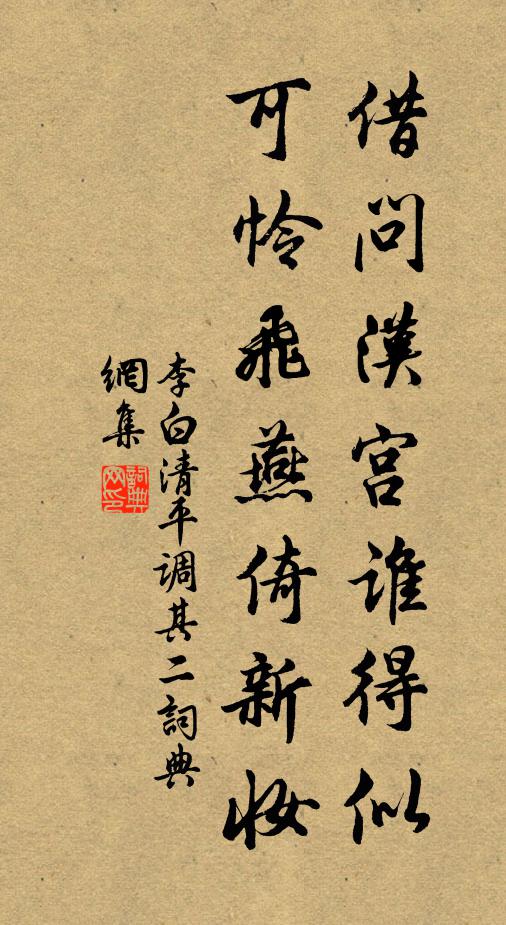 借問漢宮誰得似
可怜飛燕倚新妝
李白清平調其二詞典
網集
詞典網印